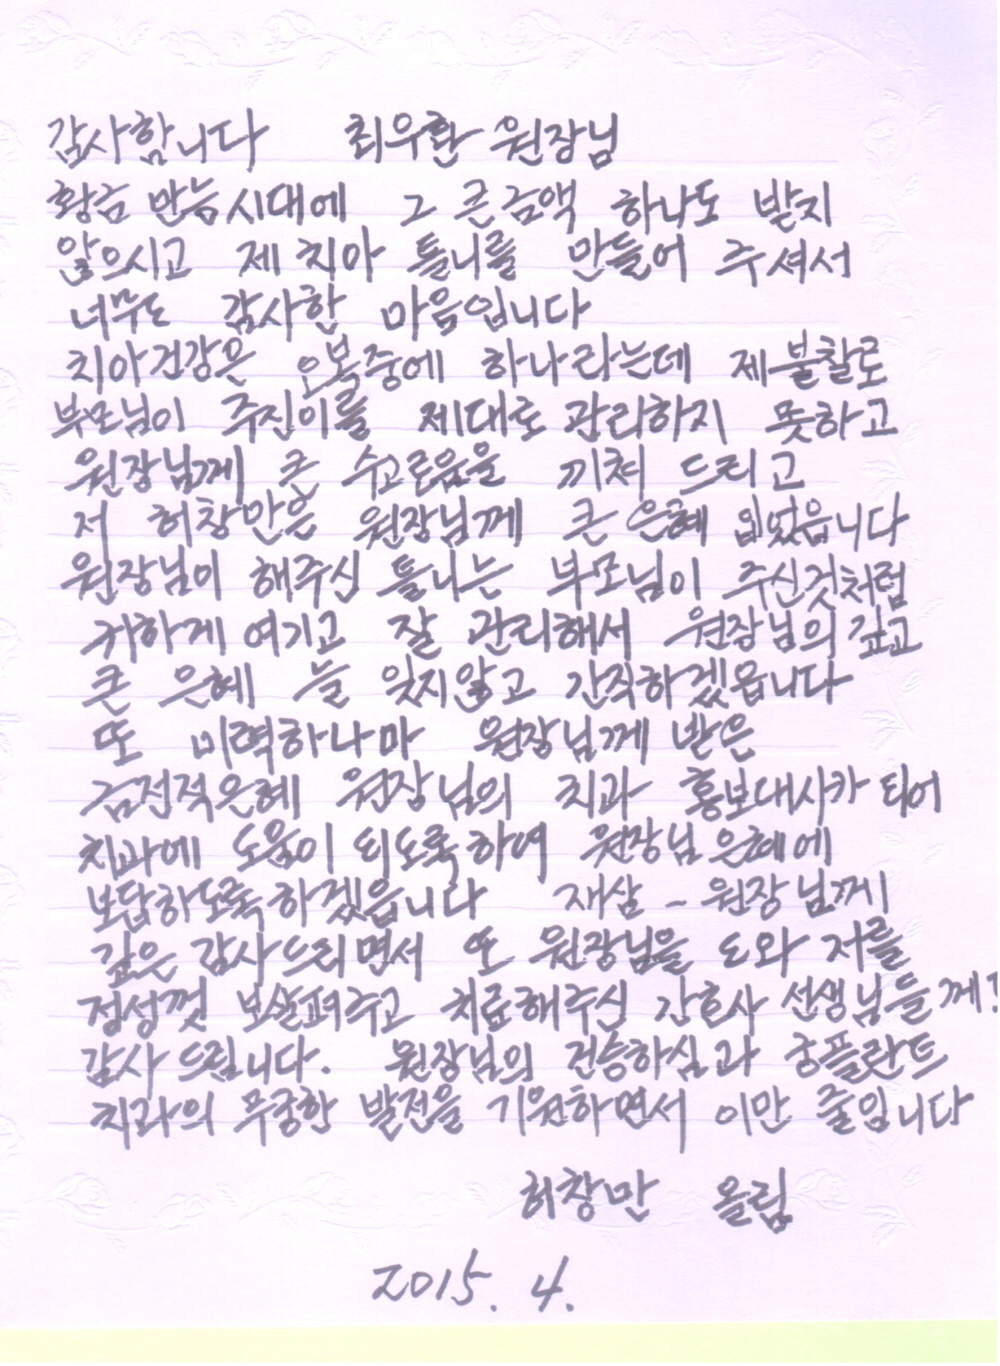 감사합니다 최우환 원장님
황금 만능시대에 그 큰금액 하나도 받지
않으시고 제 치아 틀니를 만들어 주셔서
너무도 감사한 마음입니다
치아건강은 오복중에 하나라는데 제불찰로
부모님이 주진이를 제대로 관리하지 못하고
원장님께 큰 수고로움을 끼쳐 드리고
저 허창만은 원장님께 큰 은혜 입었읍니다
원장님이 해주신 틀니는 부모님이 주신것처럼
귀하게 여기고 잘 관리해서 원장님의 깊고
큰 은혜 늘 잊지않고 간직하겠읍니다
또 미력하나마 원장님께 받은
금전적은혜 원장님의 치과 홍보대사가 되어
치과에 도움이 되도록하여 원장님은혜에
보답하도록하겠읍니다 재삼 ~ 원장님께
깊은 감사드리면서 또 원장님을 도와 저를
정성껏 보살펴주고 치료해주신 간호사 선생님들께도
감사 드립니다. 원장님의 건승하심과 굿플란트
치과의 무궁한 발전을 기원하면서 이만 줄입니다
허창만 올림
2015. 4.